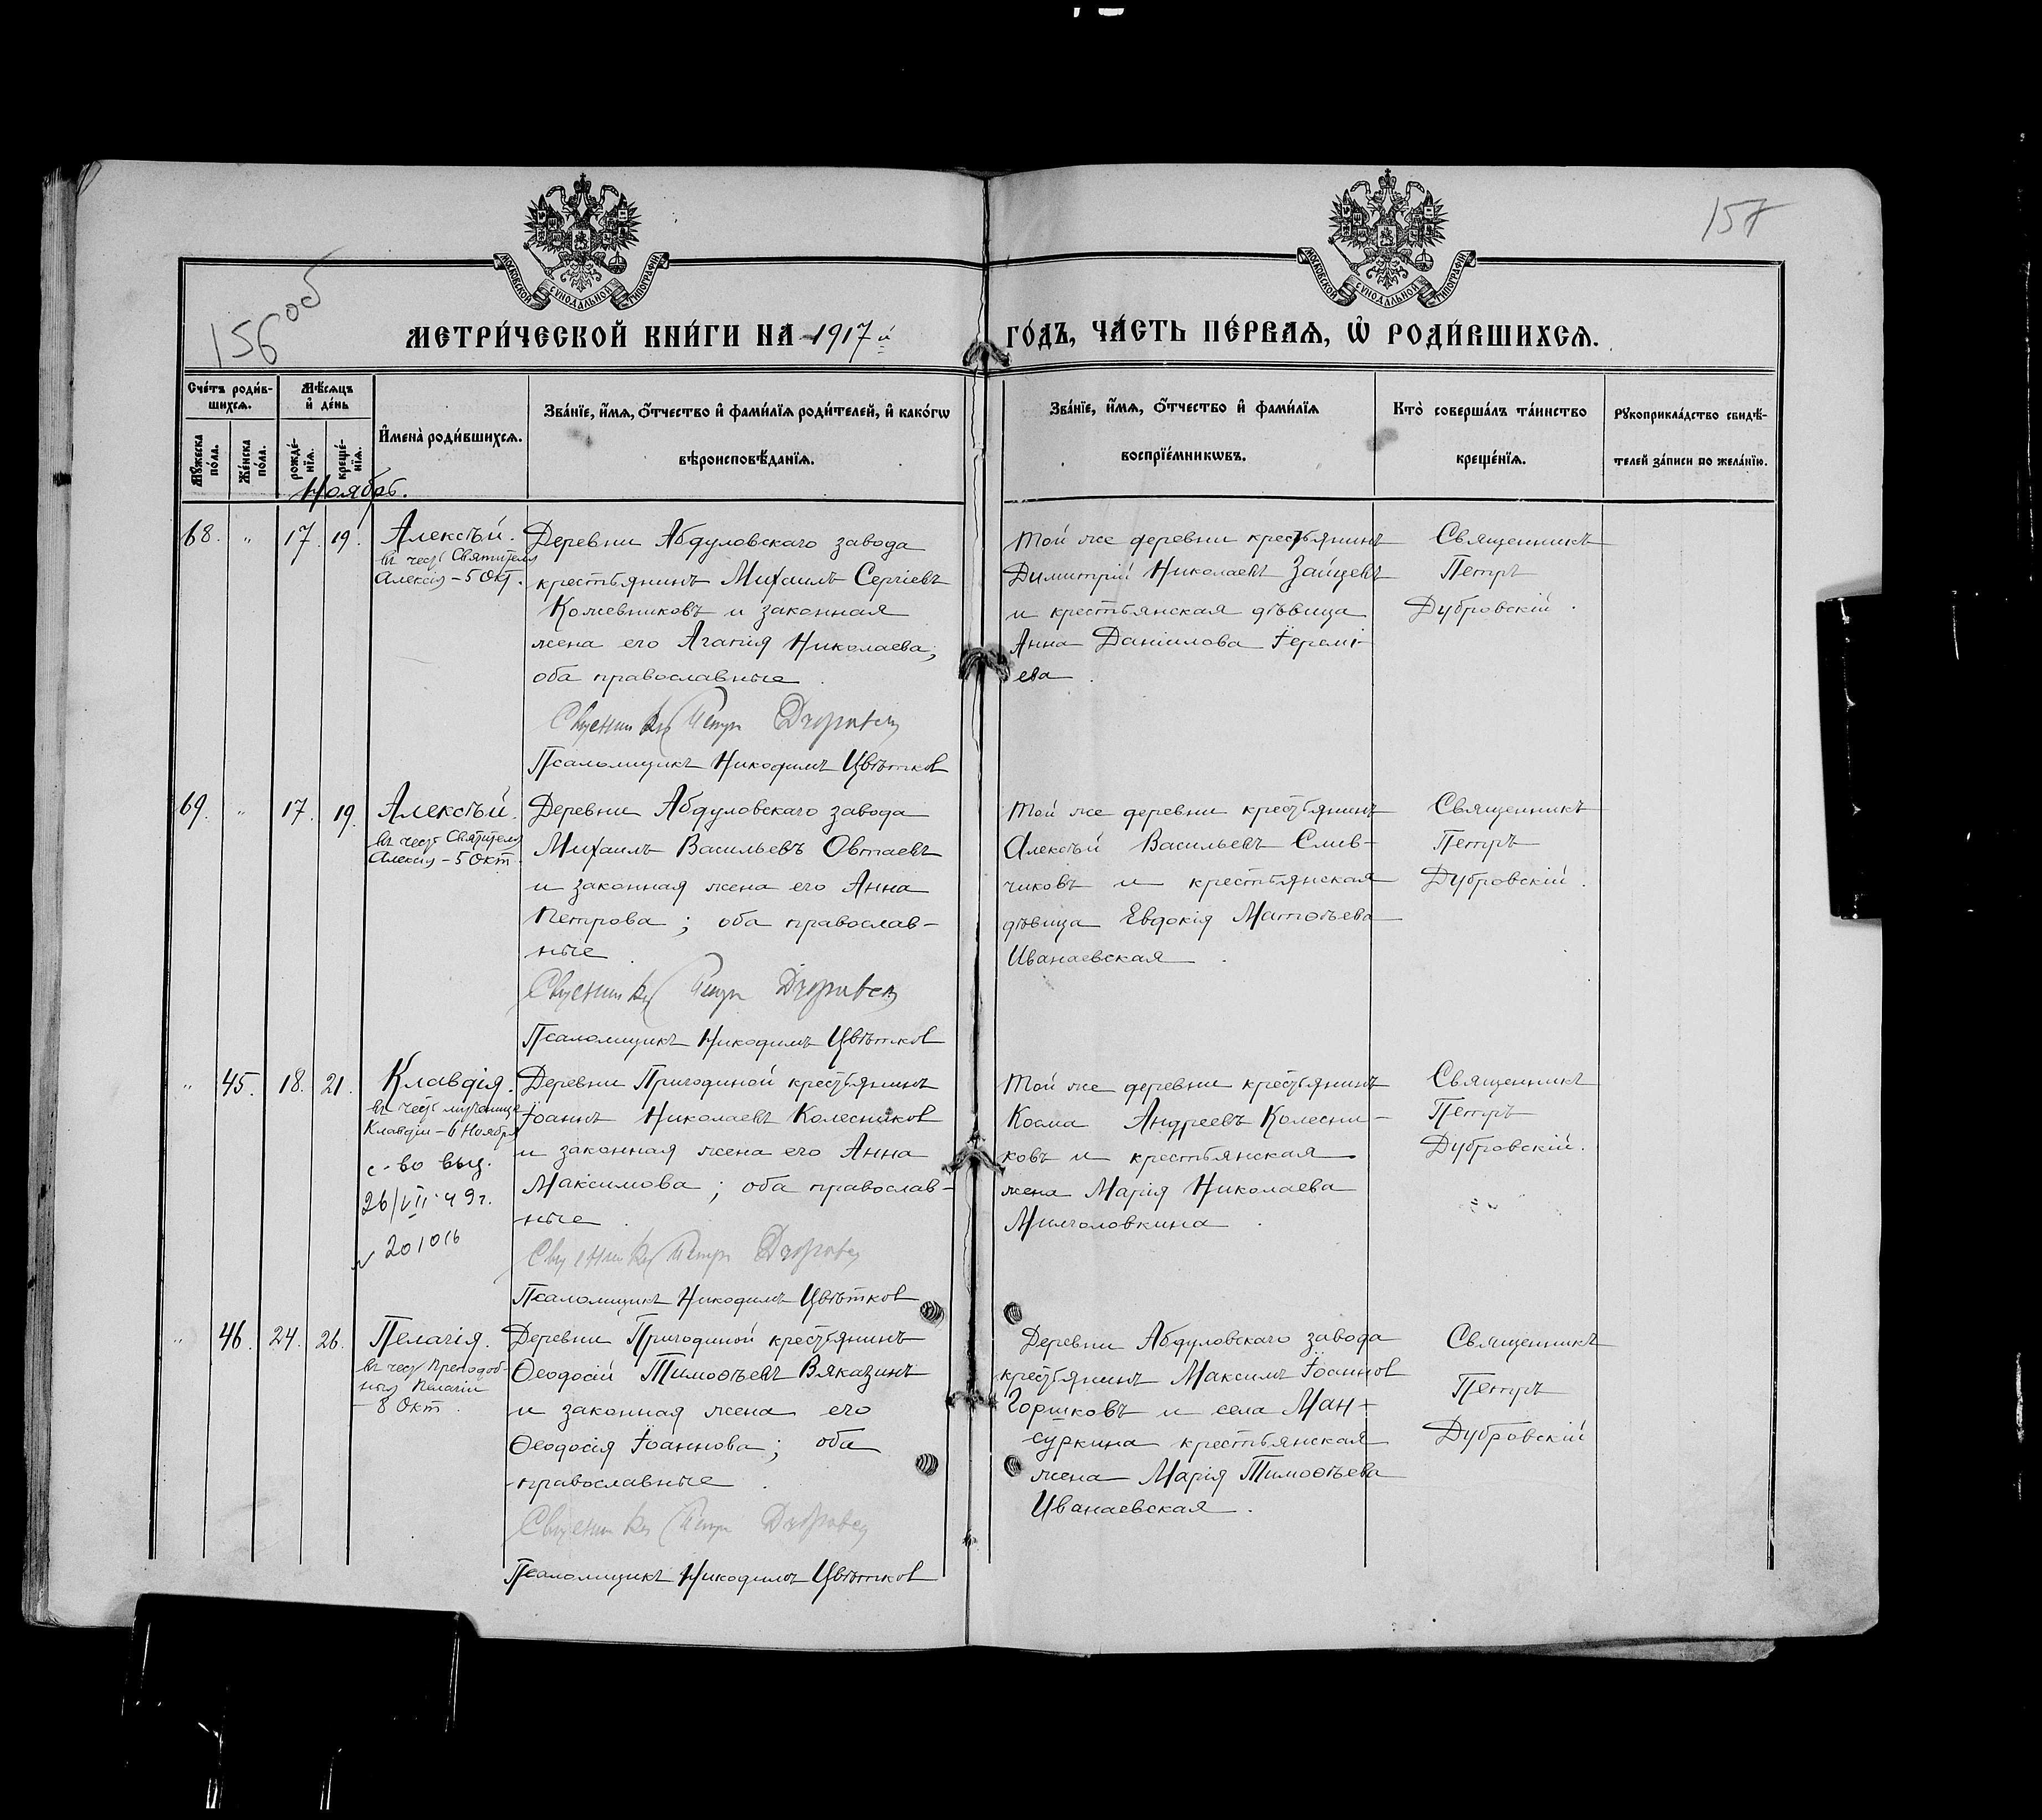 МОСКОВСКОЙ СУНОДАЛЬНОЙ ТИПОГРАФІИ
МОСКОВСКОЙ СУНОДАЛЬНОЙ ТИПОГРАФІИ
156 об
157
МЕТРИ́ЧЕСКОЙ КНИ́ГИ НА 1917 й
ГО́ДЪ, ЧА́СТЬ ПЕ́РВАѦ, Ѡ РОДИ́ВШИХСѦ.
Сче́тъ роди́в-
шихсѧ.
Мѣ́сѧцъ
и҆ де́нь
Мꙋжеска
по́ла.
Же́нска
по́ла.
рожде́-
нїѧ.
креще́-
нїѧ.
И҆мена̀ роди́вшихсѧ.
Зва́нїе, и҆́мѧ, ѻ҆́тчество и҆ фами́лїѧ роди́телей, и҆ како́гѡ
вѣроисповѣ́данїѧ.
Зва́нїе, и҆́мѧ, ѻ҆́тчество и҆ фами́лїѧ
воспрїе́мникѡвъ.
Кто̀ соверша́лъ та́инство
креще́нїѧ.
Рꙋкоприкла́дство свидѣ́-
телей за́писи по жела́нїю.
Ноябрь.
68. " 17. 19.
Алексѣй.
въ честь Святителя
Алексія – 5 Окт.
Деревни Абдуловскаго завода
крестьянинъ Михаилъ Сергіевъ
Кожевниковъ и законная
жена его Агапія Николаева;
оба православные.
Священникъ Петръ Дубровскій
Псаломщикъ Никодимъ Цвѣтков
Той же деревни крестьянинъ
Димитрій Николаевъ Зайцевъ
и крестьянская дѣвица
Анна Даніилова Іеремі-
ева.
Священникъ
Петръ
Дубровскій.
69. " 17. 19.
Алексѣй.
въ честь Святителя
Алексія – 5 Окт.
Деревни Абдуловскаго завода
Михаилъ Васильевъ Овтаевъ
и законная жена его Анна
Петрова; оба православ-
ные.
Священникъ Петръ Дубровскій
Псаломщикъ Никодимъ Цвѣтков
Той же деревни крестьянинъ
Алексѣй Васильевъ Слив-
чиковъ и крестьянская
дѣвица Евдокія Матѳѣева
Иванаевская.
Священникъ
Петръ
Дубровскій.
" 45. 18. 21.
Клавдія.
въ честь мученицы
Клавдіи – 6 Ноября
с-во выд.
26/VII 49г.
Деревни Пригодиной крестьянинъ
Іоаннъ Николаевъ Колесников
и законная жена его Анна
Максимова; оба православ-
ные.
Священникъ Петръ Дубровскій
Псаломщикъ Никодимъ Цвѣтков
Той же деревни крестьянинъ
Косма Андреевъ Колесни-
ковъ и крестьянская
жена Марія Николаева
Милоловкина.
Священникъ
Петръ
Дубровскій.
" 46. 24. 26.
Пелагія.
въ честь Преподоб-
ныя Пелагіи
– 8 Окт.
Деревни Пригодиной крестьянинъ
Ѳеодосій Тимоѳѣевъ Вяказинъ
и законная жена его
Ѳеодосія Іоаннова; оба
православные.
Священникъ Петръ Дубровскій
Псаломщикъ Никодимъ Цвѣтков
Деревни Абдуловскаго завода
крестьянинъ Максимъ Іоаннов
Горшковъ и села Ман-
суркина крестьянская
жена Марія Тимоѳѣева
Иванаевская.
Священникъ
Петръ
Дубровскій